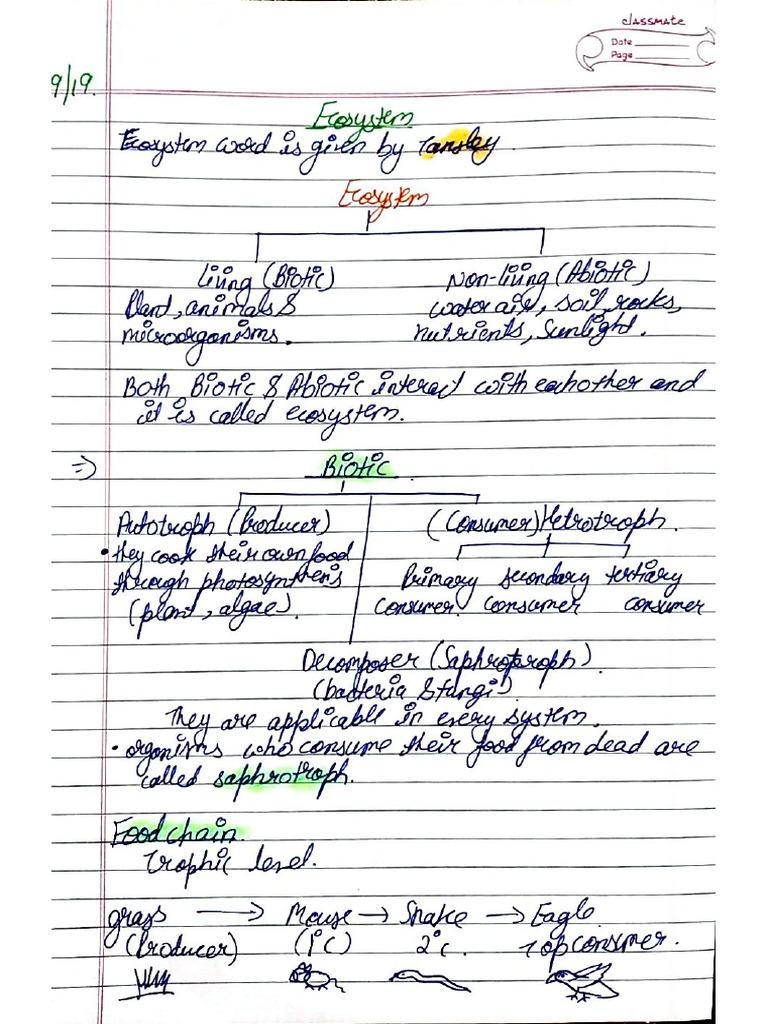 classmate
Date
Page
9/19.
Ecosystem
Ecosystem word is given by Tansley.
Ecosystem
Living (Biotic)
Non-living (Abiotic)
Plant, animals &
microorganisms.
water air, soil, rocks,
nutrients, sunlight.
Both Biotic & Abiotic interact with eachother and
it is called ecosystem.
=> Biotic
Autotroph (Producer)
(Consumer) Hetrotroph.
• they cook their own food
through photosynthesis
(plant, algae).
Primary secondary tertiary
consumer consumer consumer
Decomposer (Saphrotroph)
(bacteria & fungi)
They are applicable in every system.
• organisms who consume their food from dead are
called saphrotroph.
Food chain.
Trophic level.
grass → Mouse → Snake → Eagle
(Producer) (1°C) 2°c. Top consumer.